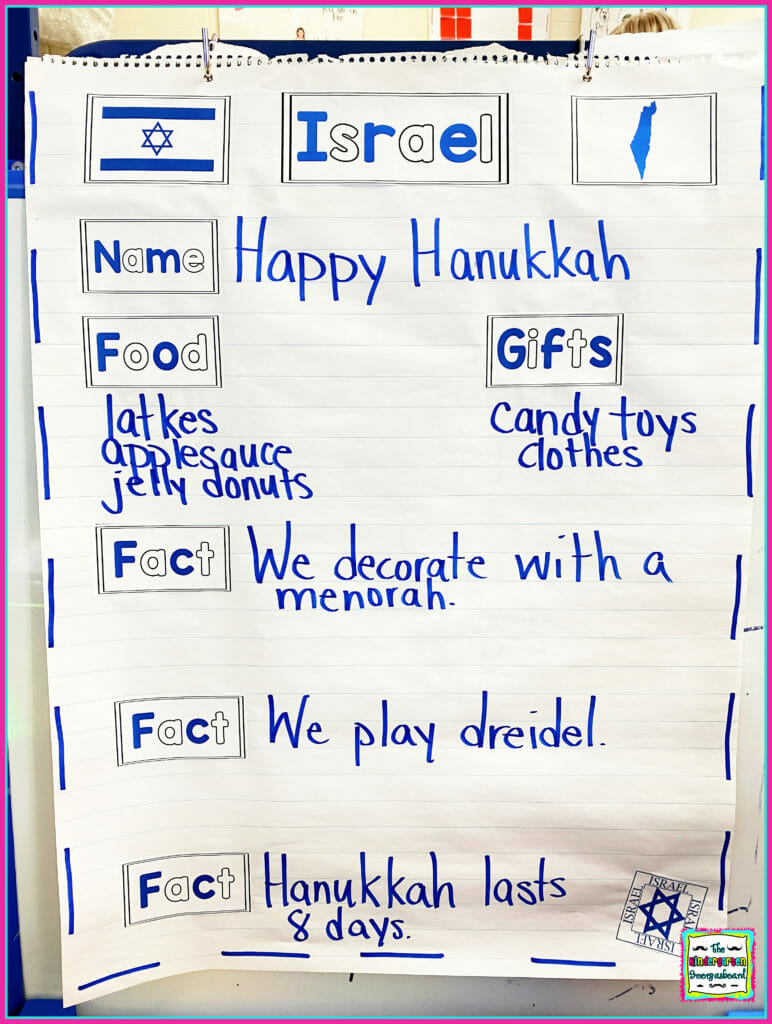 Israel
Name Happy Hanukkah
Food
latkes
applesauce
jelly donuts
Gifts
candy toys
clothes
Fact We decorate with a
menorah.
Fact We play dreidel.
Fact Hanukkah lasts
8 days.
ISRAEL
ISRAEL
ISRAEL
ISRAEL
The
Kindergarten
Smorgasboard